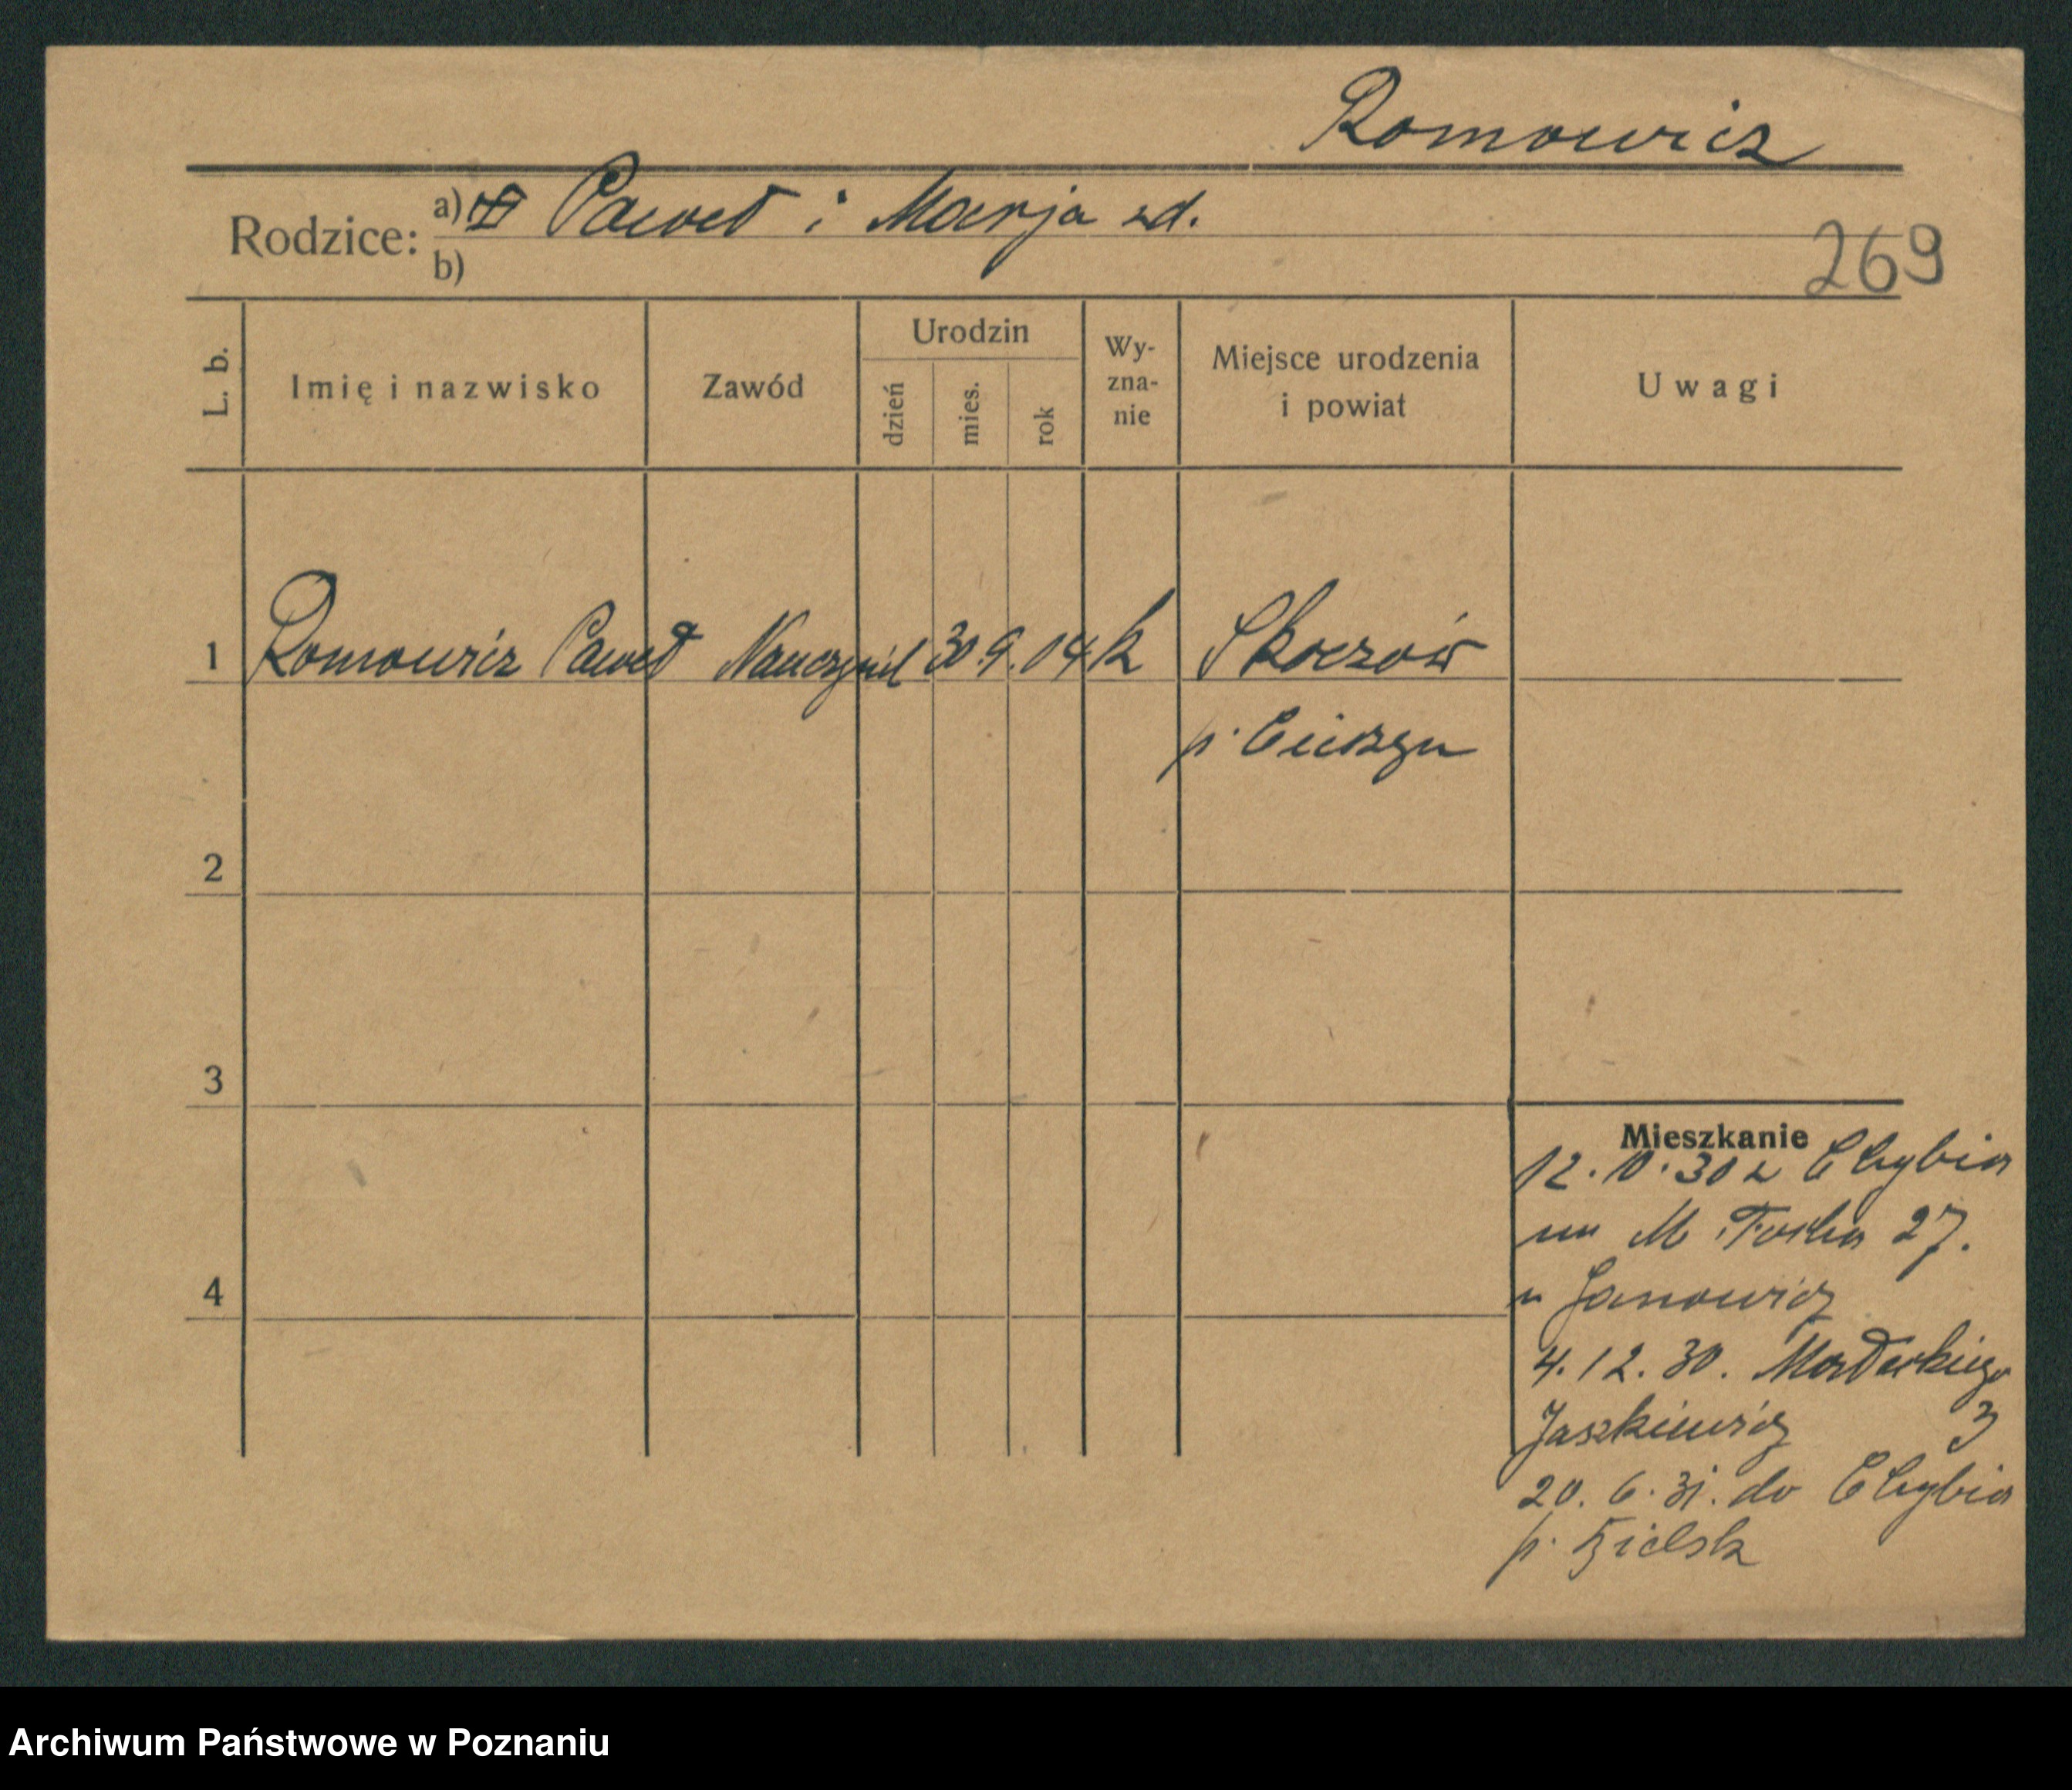 Romowicz
Rodzice: a) Paweł i Marja zd.
b)
269
L. b.
Imię i nazwisko
Zawód
Urodzin
dzień
mies.
rok
Wy-
zna-
nie
Miejsce urodzenia
i powiat
Uwagi
1 Romowicz Paweł Nauczyciel 30.9.04 k Skoczów
p. Cieszyn
2
3
4
Mieszkanie
12.10.30 z Chybia
M. Focha 27.
u Janowicz
4.12.30. Mostowskiego
Jaszkiewicz 3
20.6.31. do Chybia
p. Bielsk
Archiwum Państwowe w Poznaniu